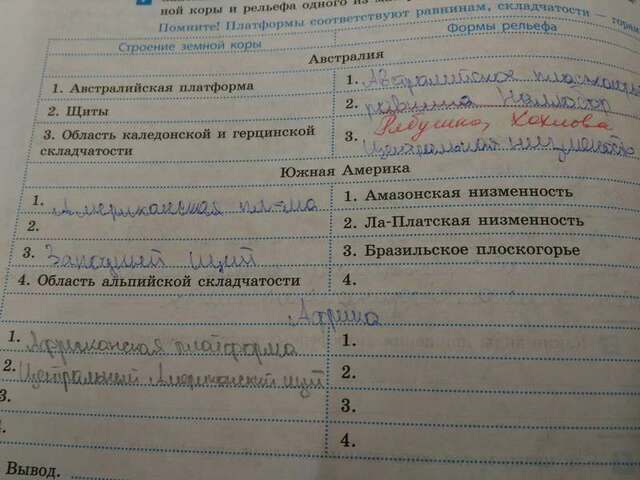 ной коры и рельефа одного из мат
Помните! Платформы соответствуют равнинам, складчатости — горам
Строение земной коры
Формы рельефа
Австралия
1. Австралийская платформа
1. Австралийское плоскогорь
2. Щиты
2. равнина Налларбор
3. Область каледонской и герцинской складчатости
3. Рябушко, Хохлова
Центральная низменность
Южная Америка
1. Американская пл-ма
1. Амазонская низменность
2.
2. Ла-Платская низменность
3. Западный щит
3. Бразильское плоскогорье
4. Область альпийской складчатости
4.
Африка
1. Африканская платформа
1.
2. Центральный Африканский щит
2.
3.
3.
4.
4.
Вывод.